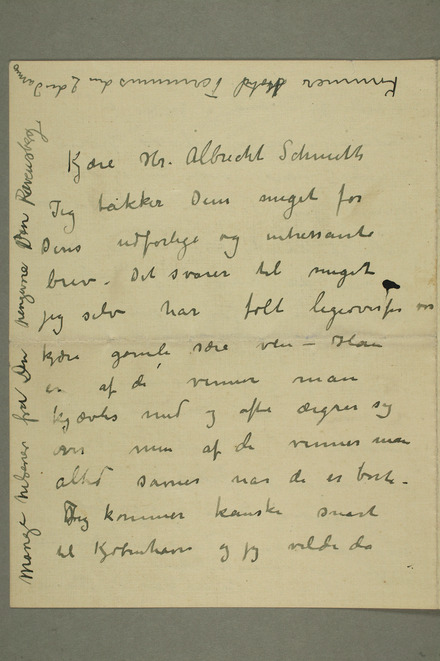 Kjære Hr. Albrecht Schmidt
Jeg takker Dem meget for
Deres udførlige og interessante
brev. Det svarer til meget
jeg selv har følt ligeoverfor vor
kjære gamle sære ven – Han
er af de venner man
kjævles med og ofte ærgrer sig
over men af de venner man
altid savner når de er borte.
Jeg kommer kanske snart
til Kjøbenhavn og jeg vilde da
Mange hilsener fra Den hengivne Den Ravensberg
Kommer Hotel Terminus den 2 den